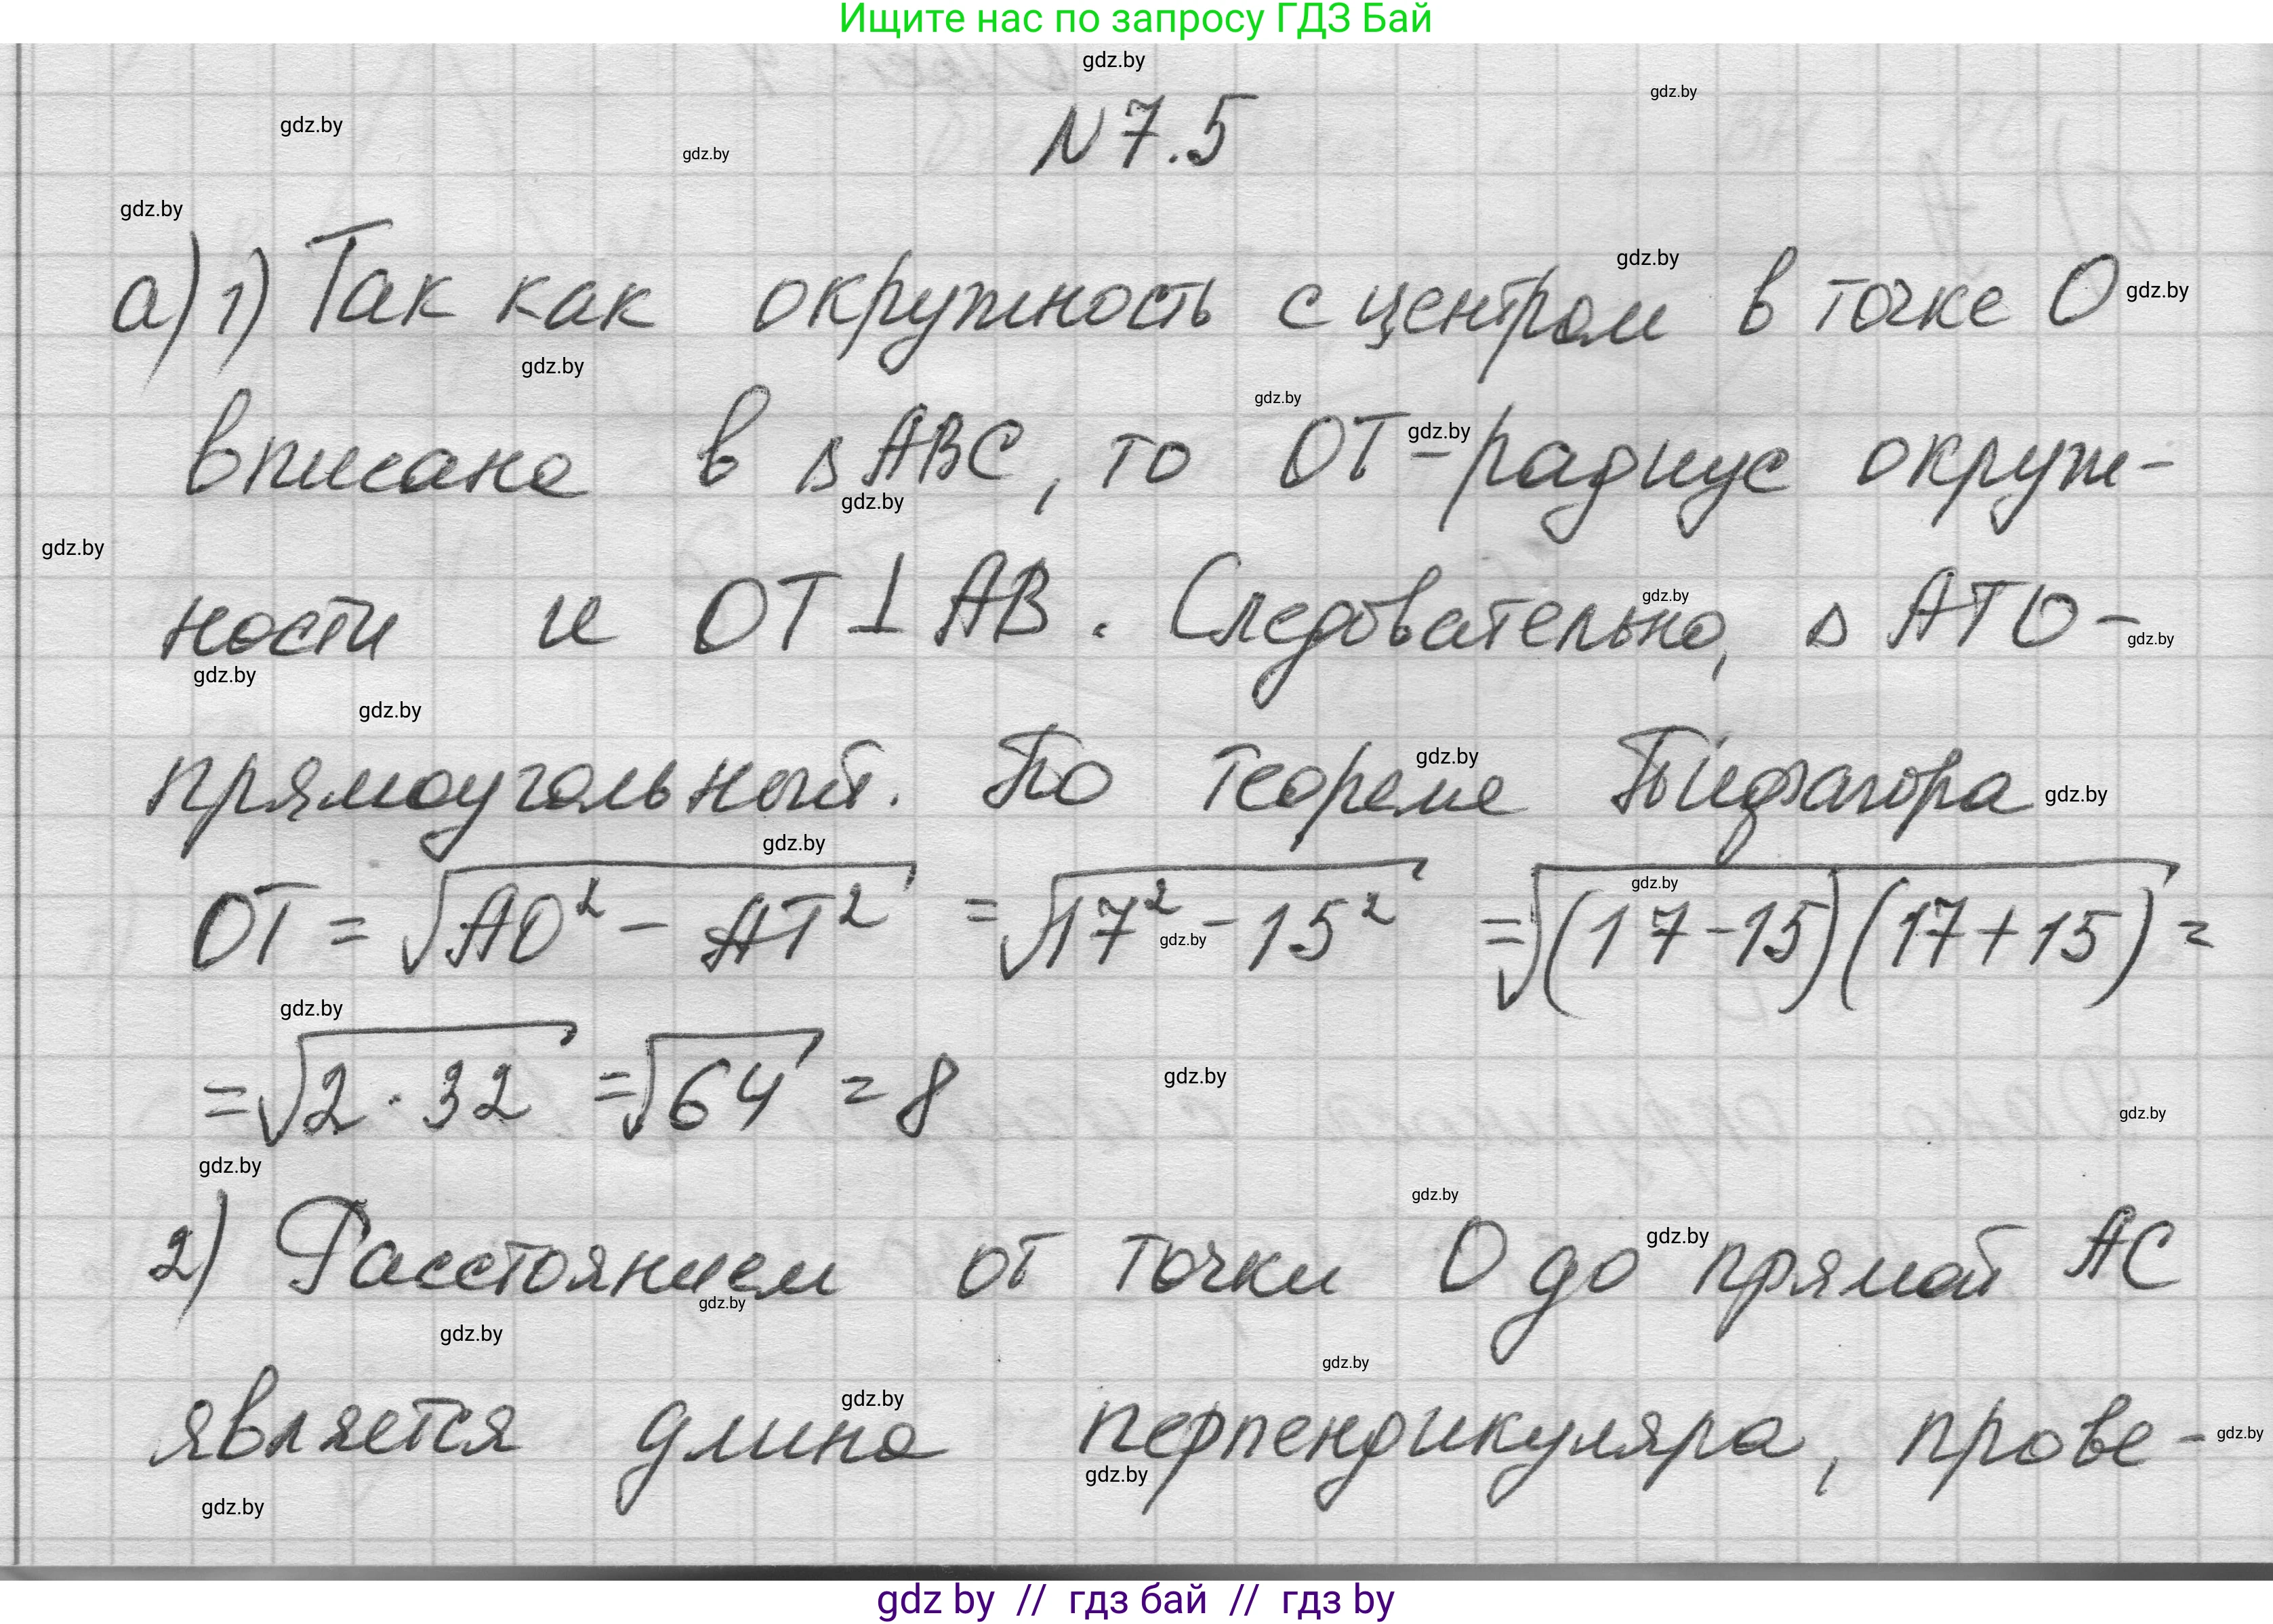 Ищите нас по запросу ГДЗ Бай
gdz.by
gdz.by
gdz.by
gdz.by
N 7.5
gdz.by
gdz.by
а) 1) Так как окружность с центром в точке О
gdz.by
gdz.by
gdz.by
gdz.by
вписана в △ABC, то OT - радиус окруж-
gdz.by
gdz.by
gdz.by
ности и OT ⊥ AB. Следовательно, △ ATO -
gdz.by
gdz.by
gdz.by
gdz.by
прямоугольный. По теореме Пифагора
gdz.by
gdz.by
gdz.by
OT = √(AO² - AT²) = √(17² - 15²) = √((17-15)(17+15)) =
gdz.by
gdz.by
= √(2 · 32) = √64 = 8
gdz.by
gdz.by
gdz.by
gdz.by
2) Расстоянием от точки О до прямой АС
gdz.by
gdz.by
gdz.by
gdz.by
gdz.by
является длина перпендикуляра, прове-
gdz.by
gdz.by
gdz.by
gdz by // гдз бай // гдз by